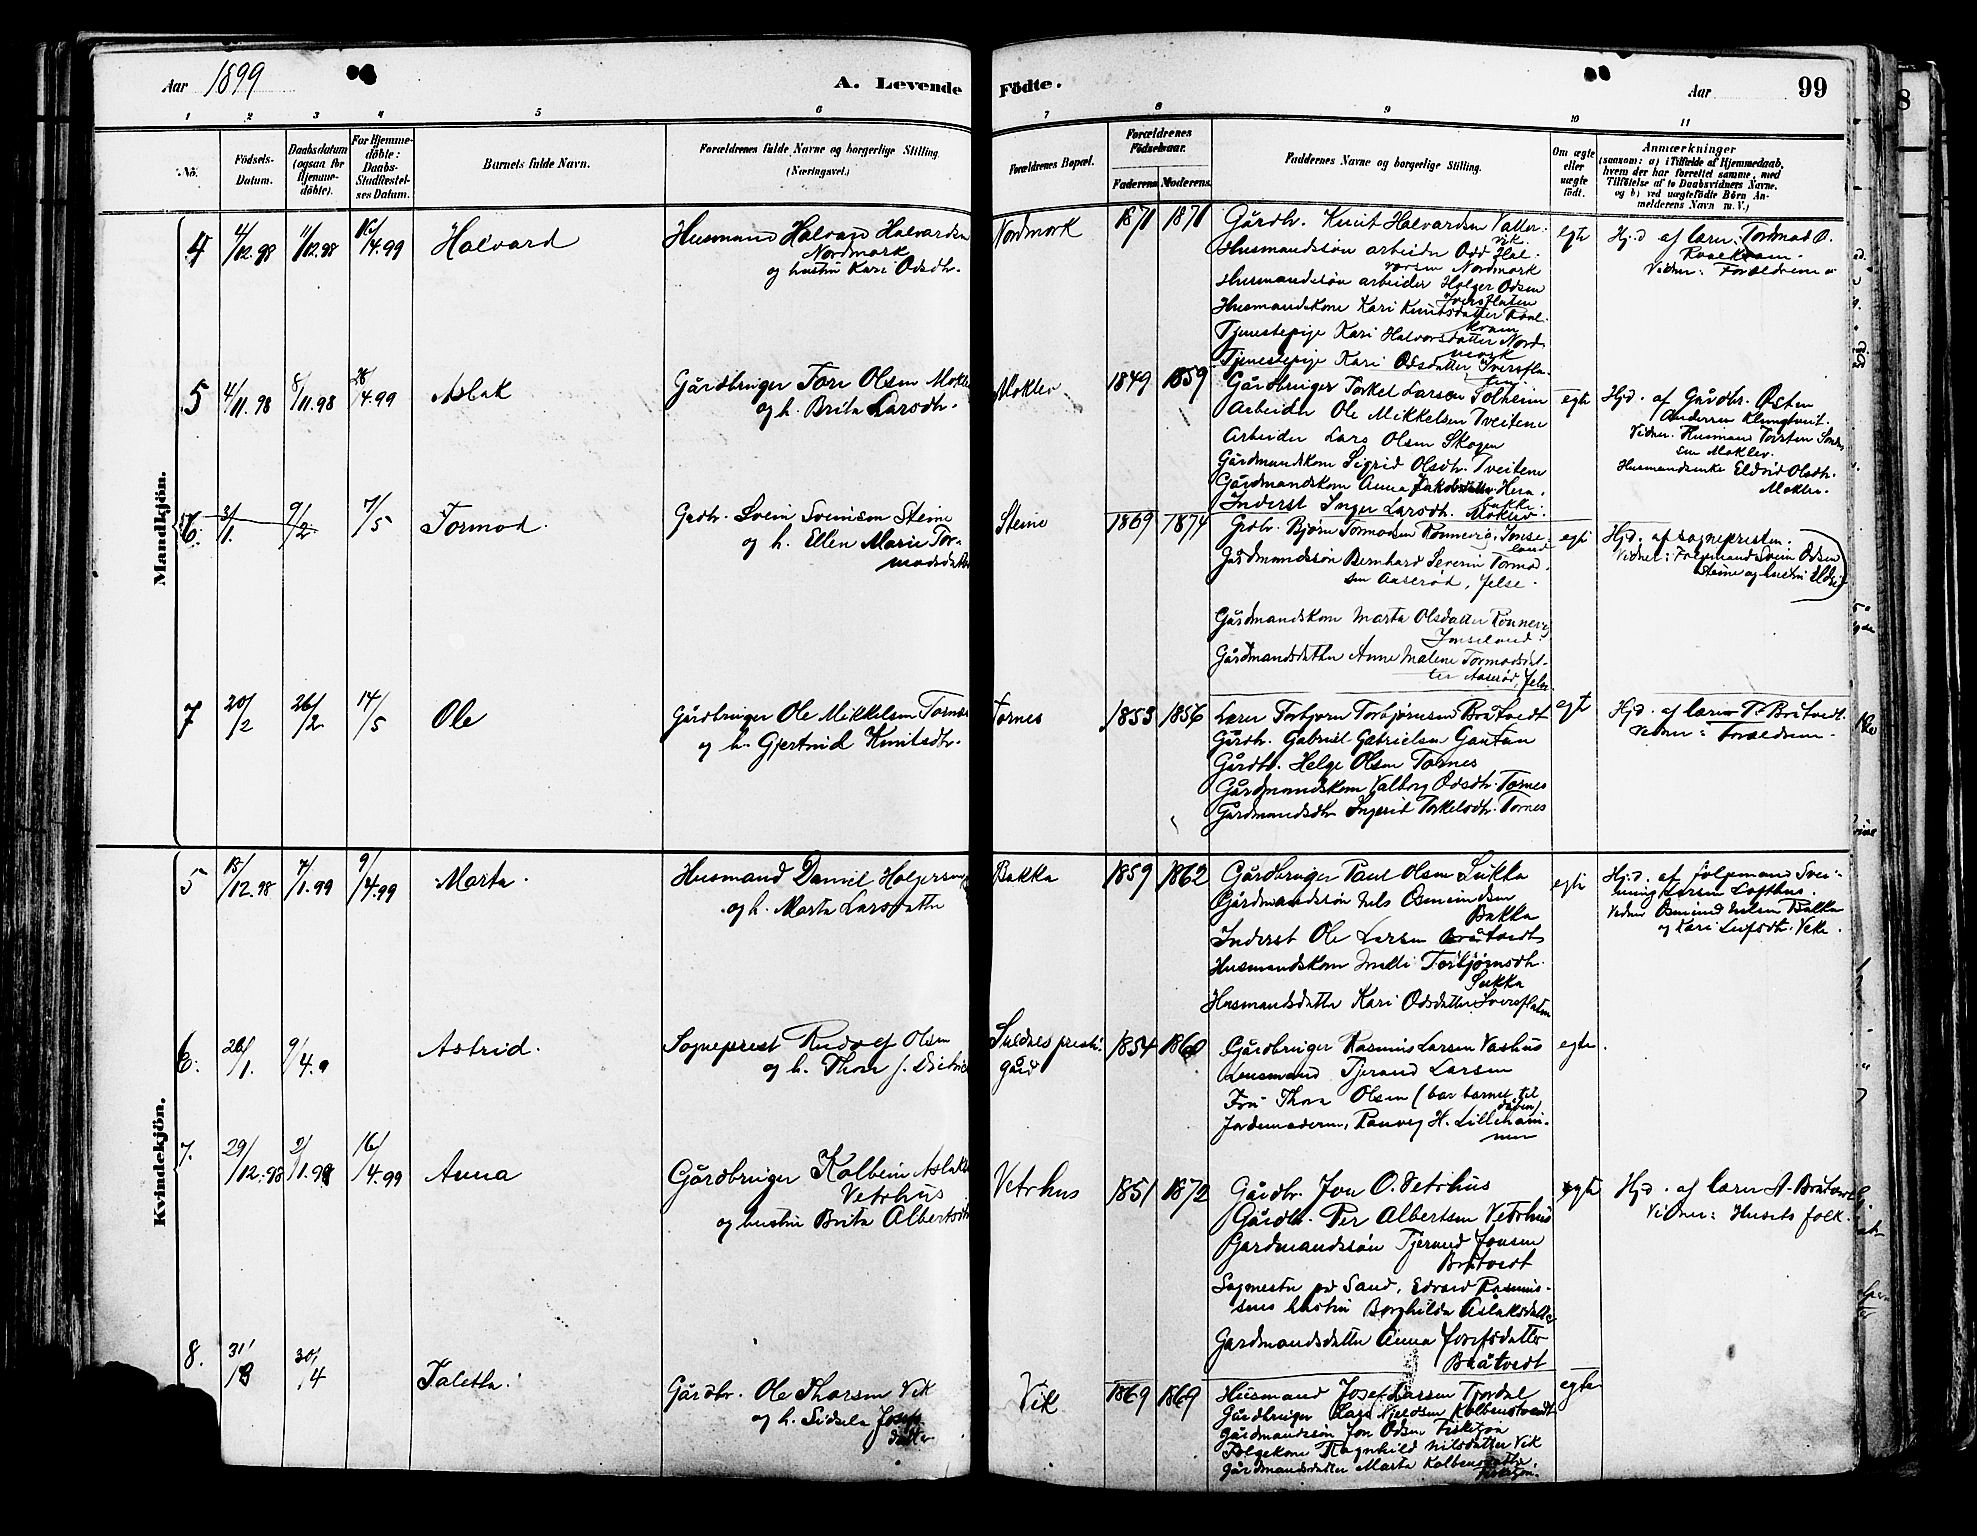 Aar 1899
A. Levende Födte.
Aar
99
1 2 3 4 5 6 7 8 9 10 11
No.
Födsels-
Datum.
Daabsdatum
(ogsaa for
Hjemme-
döbte).
For Hjemme-
döbte:
Daabs-
Stadfæstel-
ses Datum.
Barnets fulde Navn.
Forældrenes fulde Navne og borgerlige Stilling
(Næringsvei.)
Forældrenes Bopæl.
Forældrenes
Födselsaar.
Faderens Moderens
Faddernes Navne og borgerlige Stilling.
Om ægte
eller
uægte
født.
Anmærkninger
(saasom: a) i Tilfælde af Hjemmedaab,
hvem der har forrettet samme, med
Tilföielse af to Daabsvidners Navne.
og b) ved uægtefödte Börn An-
melderens Navn m. V.)
Mandkjön.
4
4/12.98
11/12.98
16/4.99
Halvard
Husmand Halvard Halvardsen
Nordmork
og hustru Kari Odsdtr.
Nordmork
1871
1871
Gårdbr. Knut Halvardsen Vatter-
vik.
Husmandssøn arbeider Odd Hal-
vorsen Nordmork
Husmandssøn arbeider Holger Odsen
Iversflaten
Husmandskone Kari Knutsdatter Roal-
kvam
Tjenestepige Kari Halvorsdatter Nord-
mork
Tjenestepige Kari Odsdatter Iversfla-
ten.
egte
Hj.d af lærer Tormod O.
Roalkvam.
Vidner: Forældrene
5
4/11.98
8/11.98
28/4.99
Aslak
Gårdbruger Tore Olsen Mokle
og h. Brita Larsdtr.
Moklev
1849
1859
Gårdbruger Torkel Larsen Solheim
Arbeider Ole Mikkelsen Tveitene
Arbeider Lars Olsen Skogen
Gårdmandskone Sigrid Olsdtr. Tveitene
Gårdmandskone Anna Jakobsdatter Hera.
Sukke
Inderst Inger Larsdtr. Moklev.
egte
Hjd. af Gårdbr. Østen
Andersen Klungtveit.
Vidner. Husmand Torsten
sen Moklev.
Husmandsenke Eldrid Olsdtr.
Moklev.
6.
3/1.
9/2
7/5
Tormod.
Grdbr. Svein Sveinsen Steine
og h. Ellen Marie Tor-
modsdatter
Steine
1869
1874
Grdbr. Bjørn Tormodsen Rønnevig, Imse-
land
Gårdmandssøn Bernhard Severin Tormod-
sen Aaserød, Jelse.
Gårdmandskone Marta Olsdatter Rønnevig
Imseland.
Gårdmandsdatter Anne Malene Tormodsdat-
ter Aaserød, Jelse
egte
Hjd. af sognepresten.
Vidner: Folgemand Svein Odsen
Steine og hustru Eldri
7
20/2
26/2
14/5
Ole
Gårdbruger Ole Mikkelsen Tornes
og h. Gjertrud Knutsdtr.
Tornes
1853
1856
Lærer Torbjørn Torbjørnsen Bråtvedt
Gårdbr. Gabriel Gabrielsen Gautun
Gårdbr. Helge Olsen Tornes
Gårdmandskone Valborg Odsdtr. Tornes
Gårdmandsdtr Ingerid Torkelsdtr. Tornes
egt
Hjd. af lærer T. Bråtvedt.
Vidner: Forældrene.
Kvindekjön.
5
18/12.98
7/1.99
9/4.99
Marta.
Husmand Daniel Holgersen
og h. Marta Larsdatter
Bakka
1859
1862
Gårdbruger Paul Olsen Sukka
Gårdmandssøn Nils Osmundsen
Bakka
Inderst Ole Larsen Bråtvedt
Husmandskone Malli Torbjørnsdtr.
Sukka
Husmandsdatter Kari Odsdatter Iversflaten
egte
Hjd. af folgemand Svei-
nung Larsen Lofthus.
Vidner Osmund Nilsen Bakka
og Kari Leifsdtr. Veke.
6.
26/1.
9/4.
Astrid.
Sogneprest Rudolf Olsen
og h. Thora f. Dietric
Suldals preste-
gård
1854
1860
Gårdbruger Rasmus Larsen Vashus
Lensmand Tjerand Larsen
Fru Thora Olsen (bar barnet til
dåben)
Jordemoderen, Ranveig H. Lilleham-
mer
egte.
7.
29/12.98
2/1.99
16/4.99
Anna
Gårdbruger Kolbein Aslaks
Vetrhus
og hustru Brita Albertsdtr
Vetrhus
1851
1872
Gårdbr. Jon O. Vetrhus
Gårdbr. Per Albertsen Vetrhus
Gardmandssøn Tjerand Jonsen
Bråtvedt
Sagmester på Sand, Edvard Rasmus-
sens hustru Borghilda Aslaksdatter
Gardmandsdatter Anna Josefsdatter
Bråtvedt
egte
Hjd. af lærer A. Bråtve
Vidner: Husets folk.
8.
31/
30/4
Taletta.
Gårdbr. Ole Tharsen Vik
og h. Sidsela Josefs-
datter
Vik
1869
1869
Husmand Josef Larsen Fjordal
Gårdbruger Lars Njeldsen Kolbenstvedt
Gårdmandssøn Jon Odsen Fisketjøn
Folgekone Ragnhild Nilsdatter Vik
Gårdmandsdatter Marta Kolbensdatter
Fisketjøn.
egte